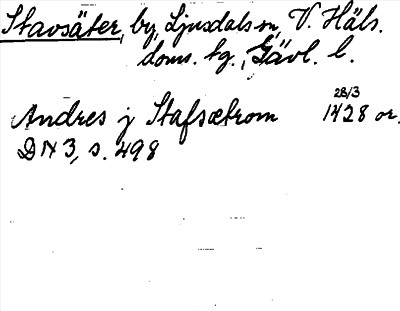 Stavsäter, by, Ljusdals sn, V. Häls.
doms. tg., Gävl. l.
28/3
Andres j Stafsætrom 1428 or.
DN 3, s. 498